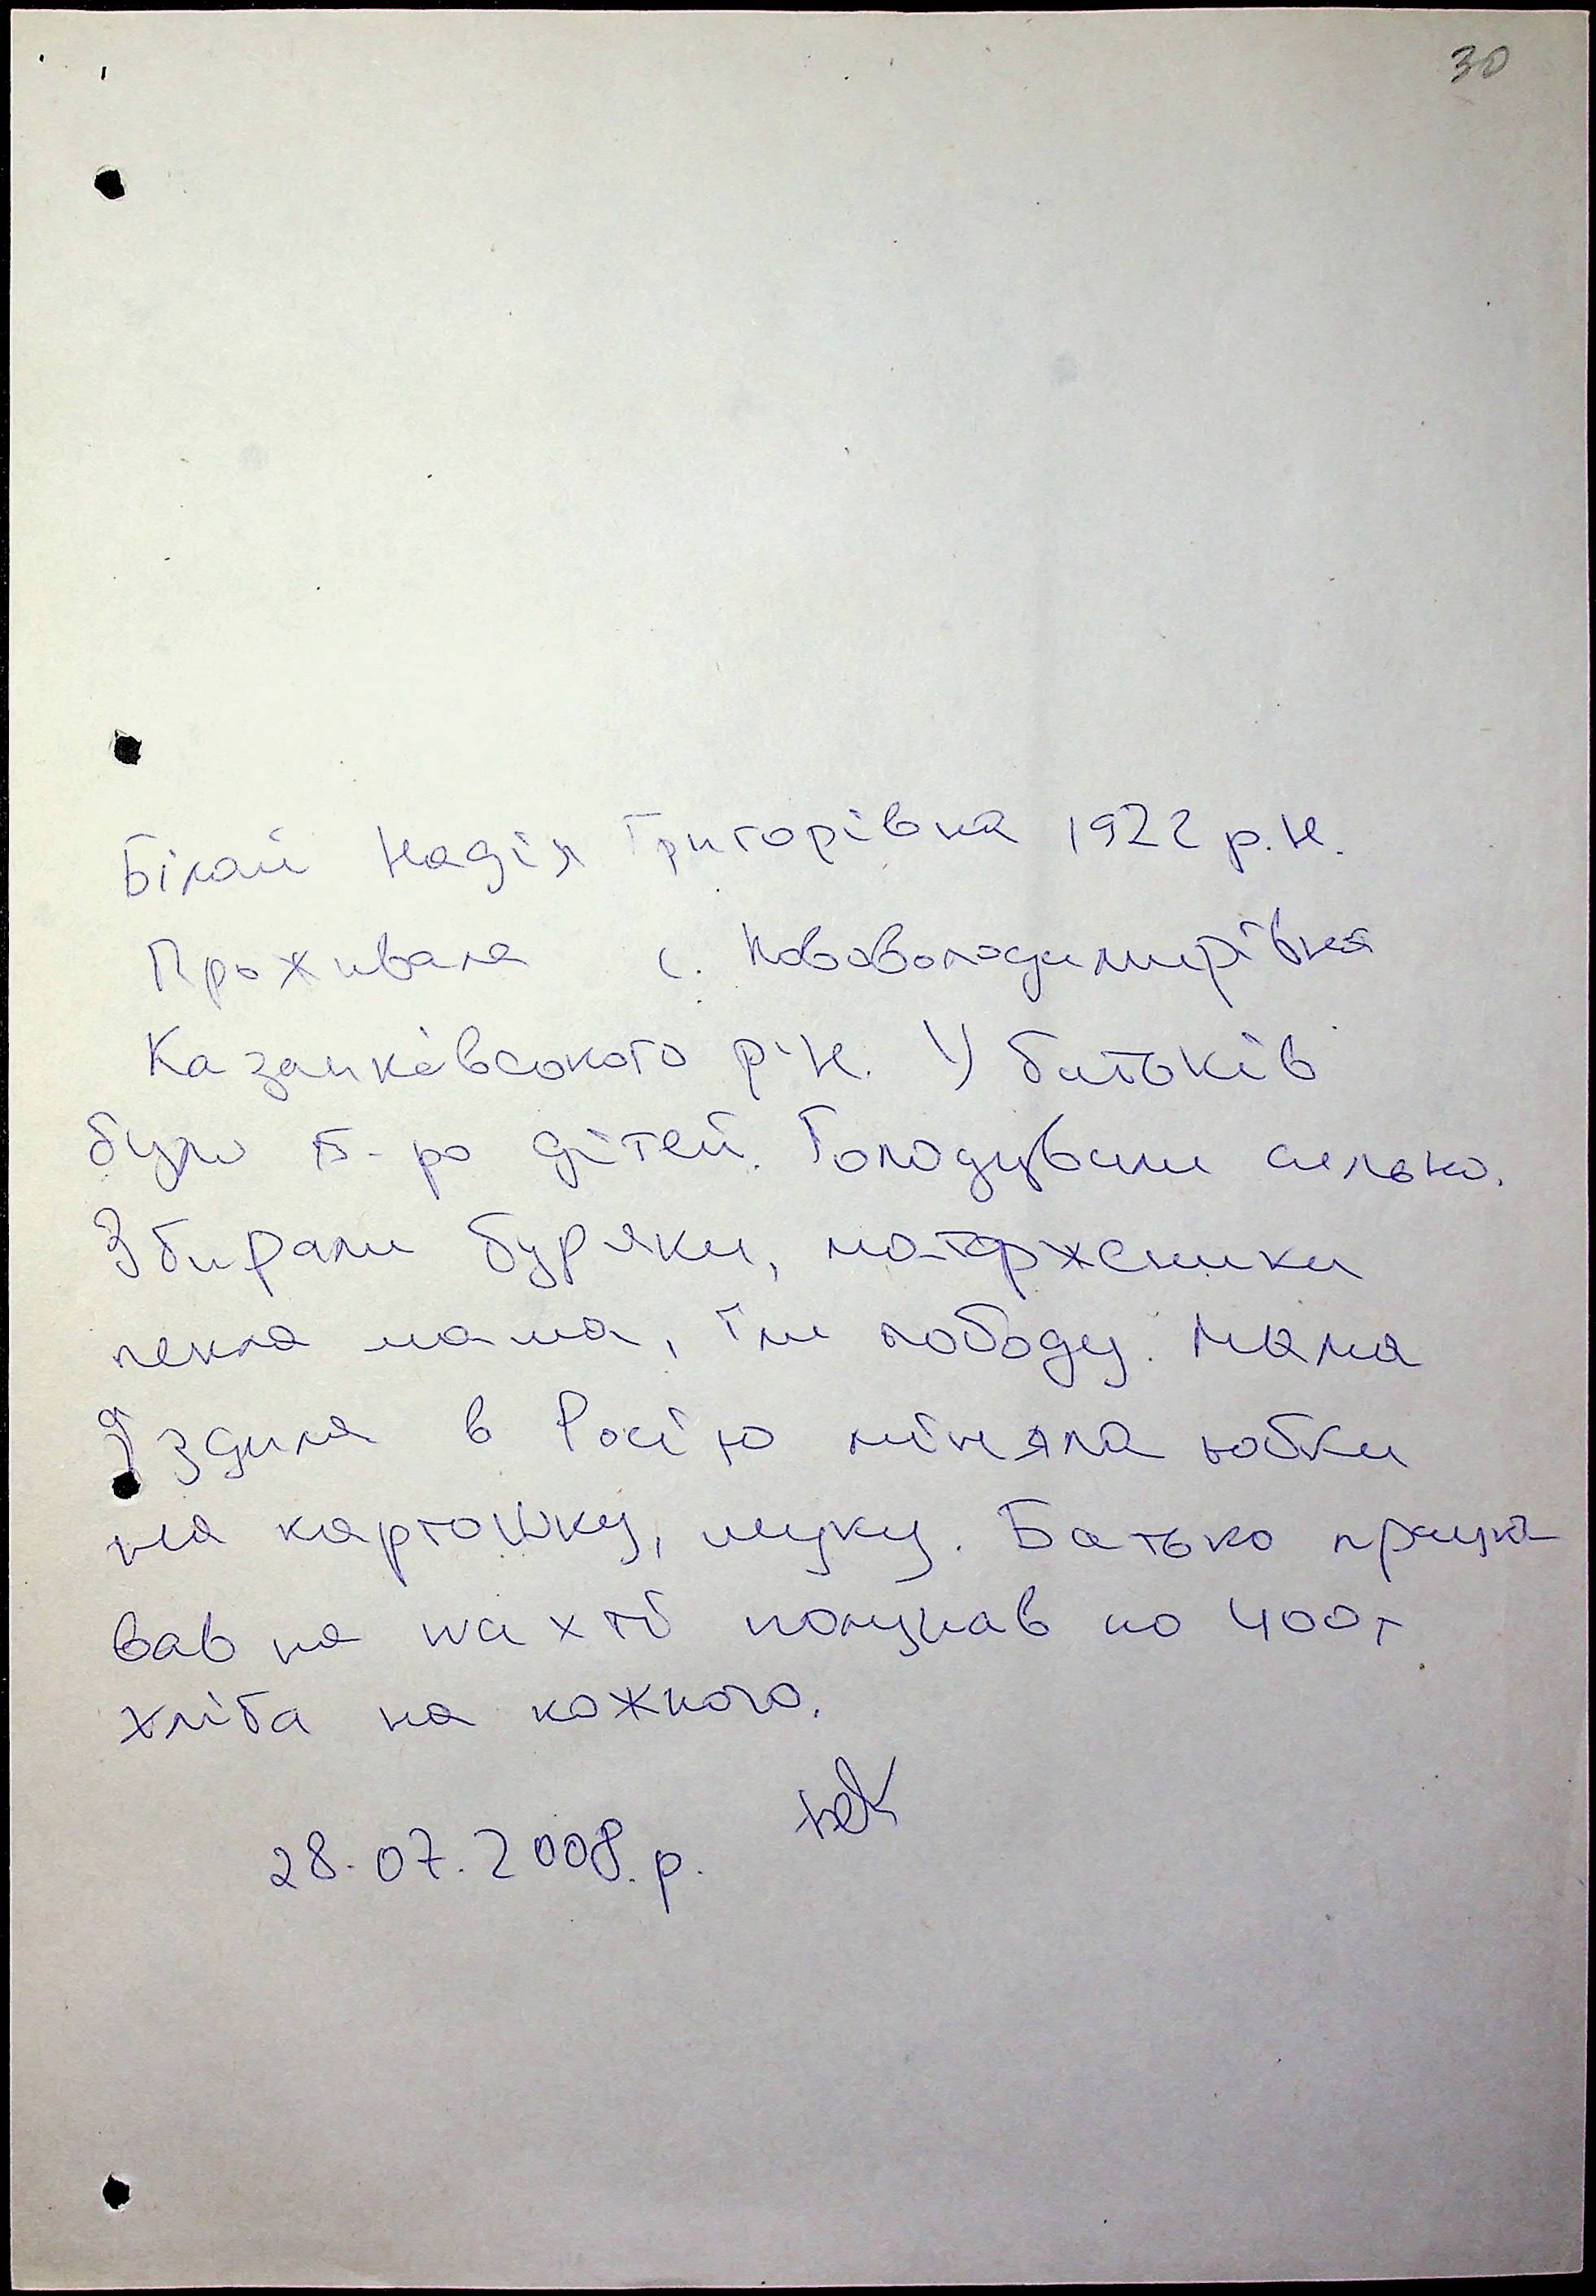 30
Білай Надія Григорівна 1922 р.н.
Проживала с. Нововолодимирівка
Казанківсокого р-н. У батьків
було 5-ро дітей. Голодували сильно.
Збирали буряки, маторженики
пекла мама, їли лободу. Мама
Їздила в Росію міняла юбки
на картошку, муку. Батько працю
вав на шахті получав по 400г
хліба на кожного.
28.07.2008.р.